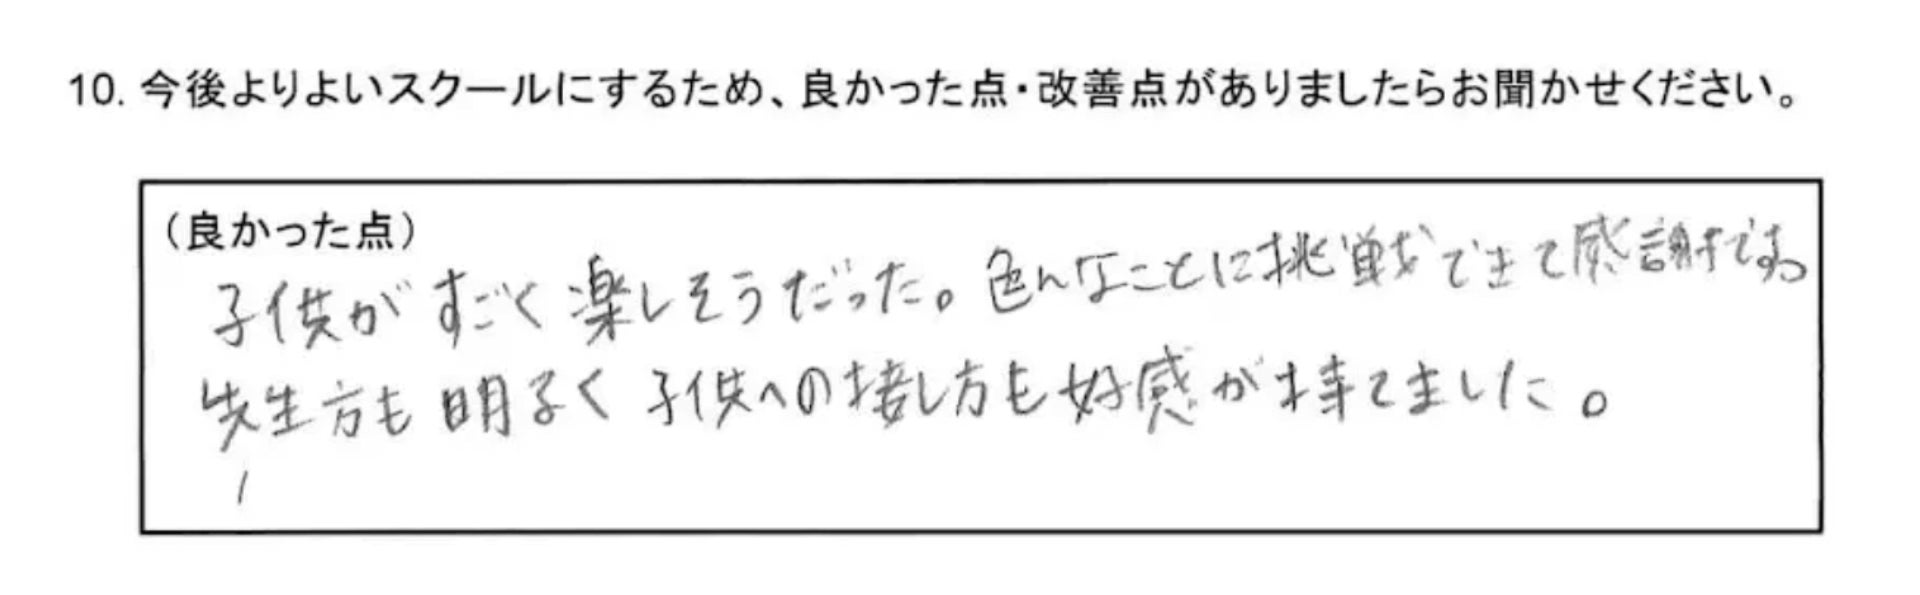 10. 今後よりよいスクールにするため、良かった点・改善点がありましたらお聞かせください。
(良かった点)
子供がすごく楽しそうだった。色んなことに挑戦できて感謝です。
先生方も明るく子供への接し方も好感が持てました。